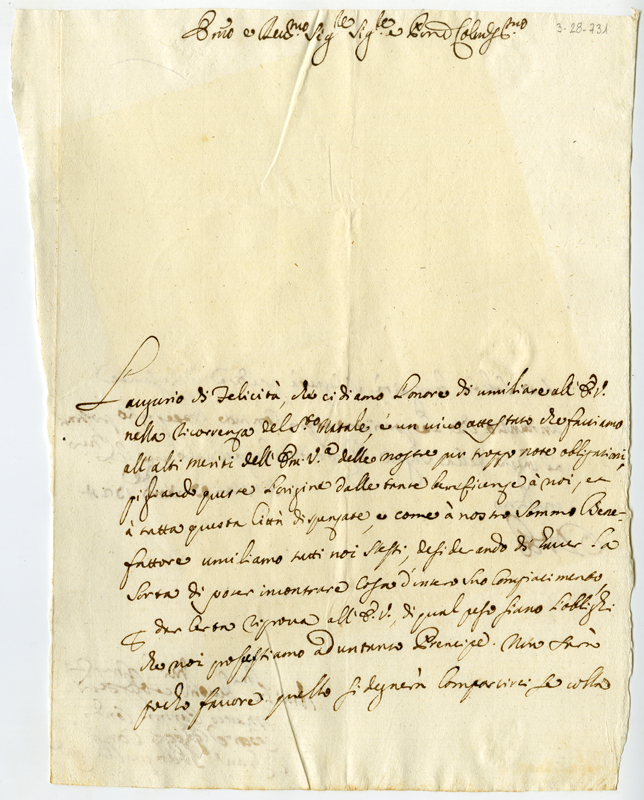 Emo e Rev.mo Sig.re Sig.re e Pron Colend.mo
3-28-731
L'augurio di Felicità, che ci diamo l'onore di umiliare all' E. V.
nella ricorrenza del S.to Natale, è un vivo attestato che facciamo
all' alti meriti dell' Em. V.a delle nostre pur troppo note obligationi,
pigliando queste l'origine dalle tante beneficenze à noi, et
à tutta questa Città dispensate, e come à nostro Sommo Bene-
fattore umiliamo tutti noi stessi, desiderando di haver la
sorte di poter incontrare cosa d'intero suo Compiacimento,
dar certa riprova all' E. V., di qual peso siano l'oblighi
che noi professiamo ad un tanto Prencipe. Non sarà
poco favore quello si degnerà compartirci se colla